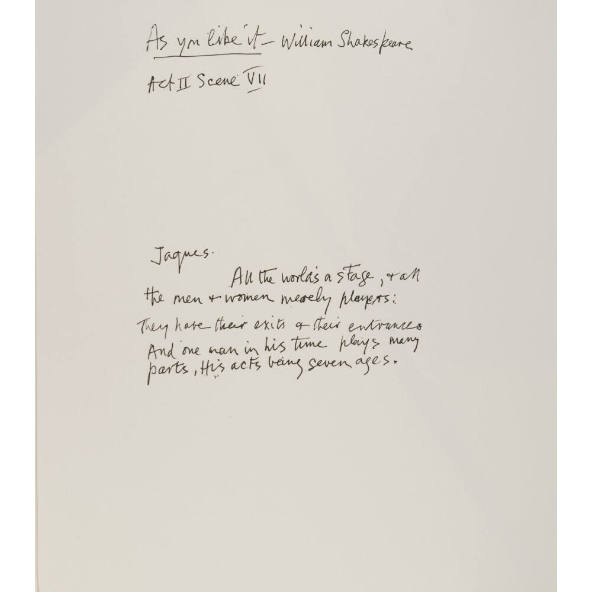 As you like it – William Shakespeare
Act II Scene VII
Jaques.
All the world's a stage, & all
the men & women merely players:
They have their exits & their entrances
And one man in his time plays many
parts, His acts being seven ages.